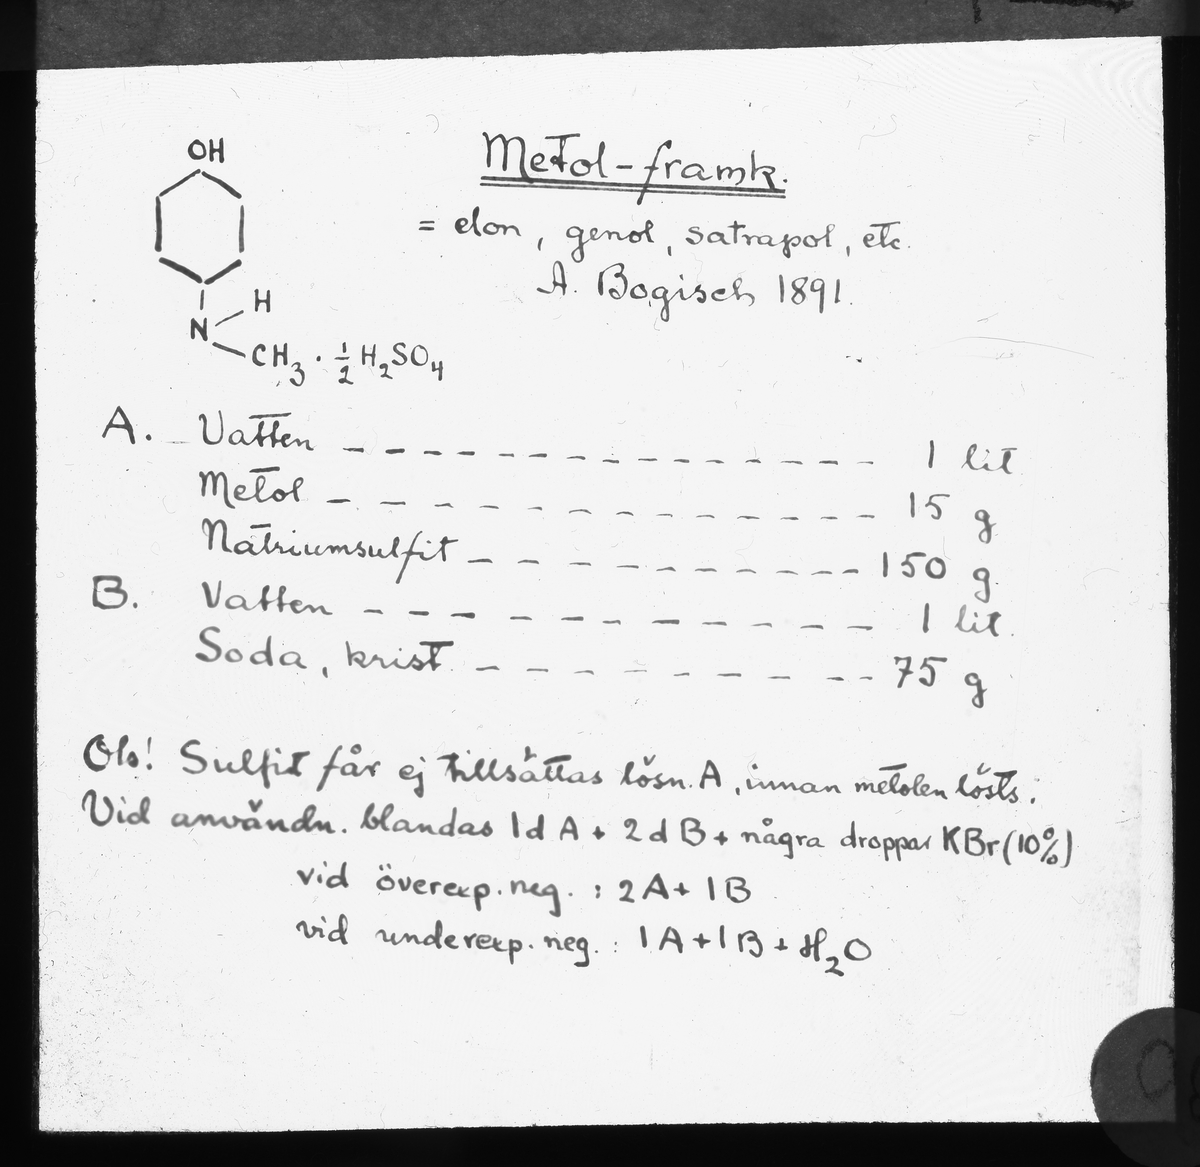 Metol-framk.
= elon, genol, satrapol, etc.
A. Bogisch 1891.
OH
H
N
CH₃ · ½ H₂SO₄
A. Vatten - - - - - - - - - - - - - - - 1 lit
Metol - - - - - - - - - - - - - - 15 g
Natriumsulfit - - - - - - - - - - - 150 g.
B. Vatten - - - - - - - - - - - 1 lit.
Soda, krist. - - - - - - - - - - 75 g
Obs! Sulfit får ej tillsättas lösn. A, innan metolen lösts.
Vid användn. blandas 1 d A + 2 d B + några droppar KBr (10%)
vid överexp. neg. : 2A + 1B
vid underexp. neg. : 1A + 1B + H₂O